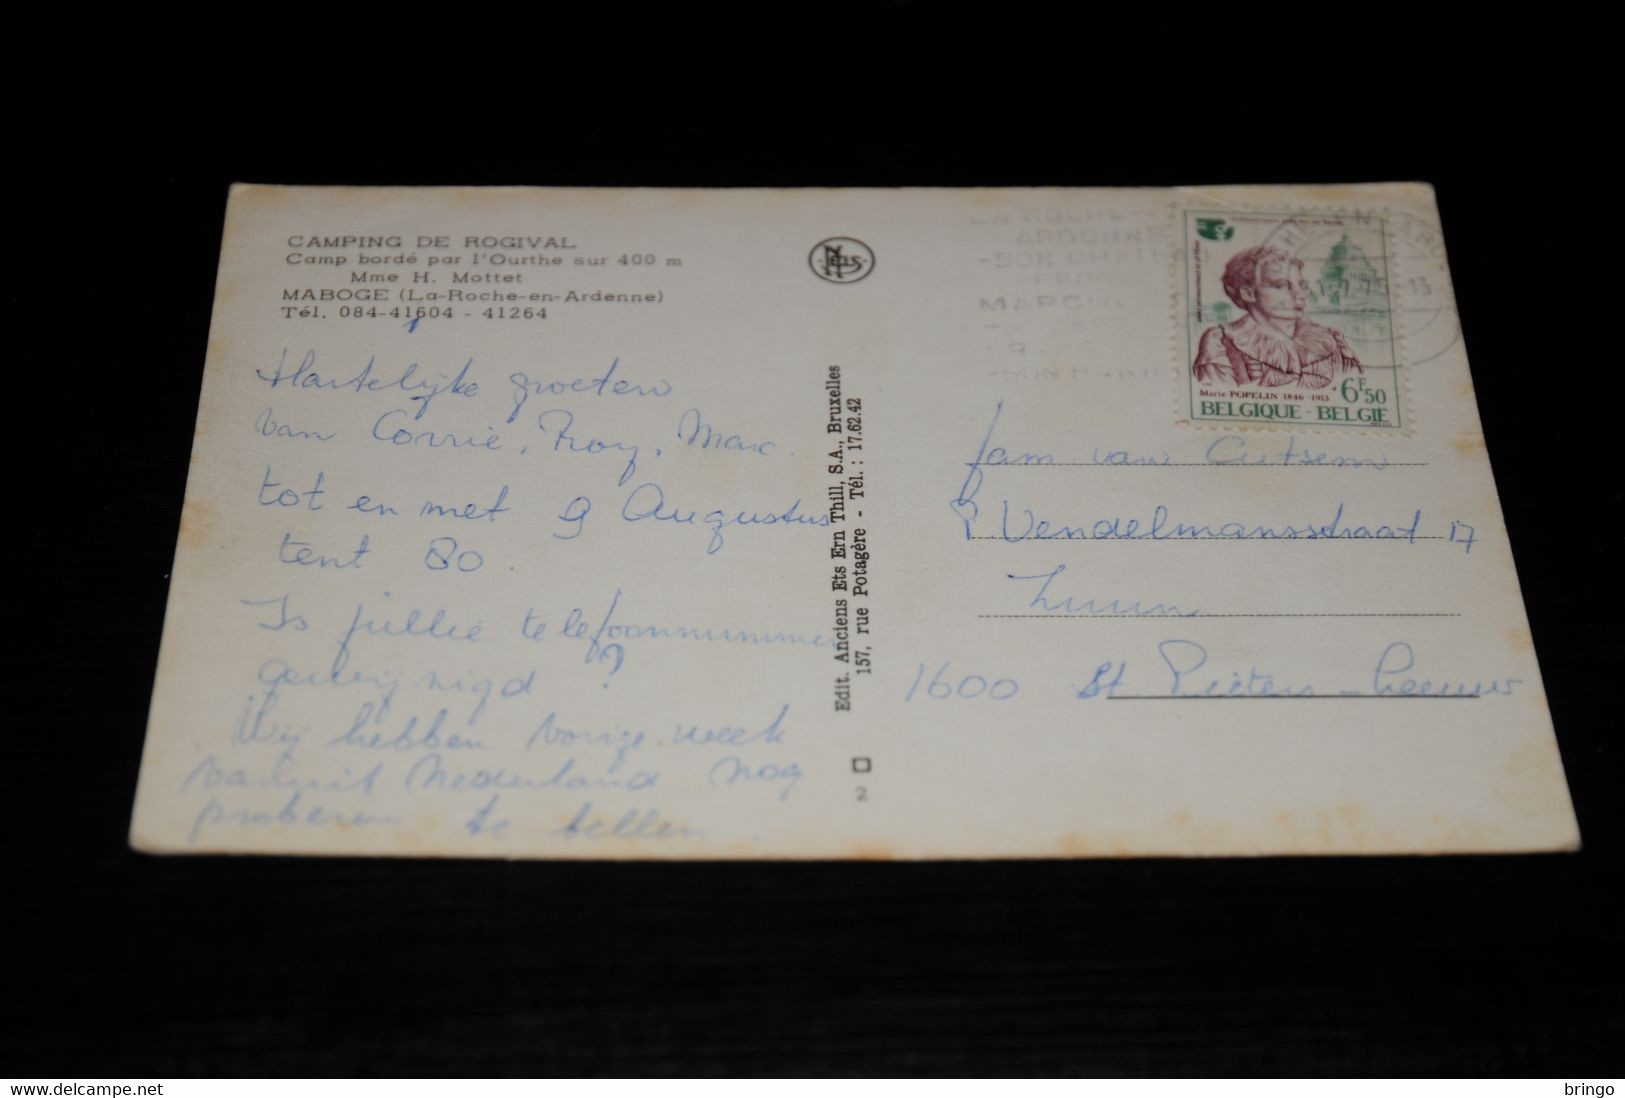 CAMPING DE ROGIVAL
Camp bordé par l'Ourthe sur 400 m
Mme H. Mottet
MABOGE (La-Roche-en-Ardenne)
Tél. 084-41604 - 41264
Hartelijke groeten
van Corrie, Roy, Marc.
tot en met 9 Augustus
tent 80.
Is jullie telefoonnummer
gewijzigd ?
Wij hebben vorige week
vanuit Nederland nog
proberen te bellen.
Nels
Edit. Anciens Ets Ern Thill, S.A., Bruxelles
157, rue Potagère - Tél. : 17.62.42
2
LA ROCHE-
ARDENNE
-SON CHATEAU
Marie POPELIN 1846-1913
6F50
BELGIQUE-BELGIE
fam van Cutsem
P. Vendelmansstraat 17
Zuun
1600 St Pieters-Leeuw
bringo